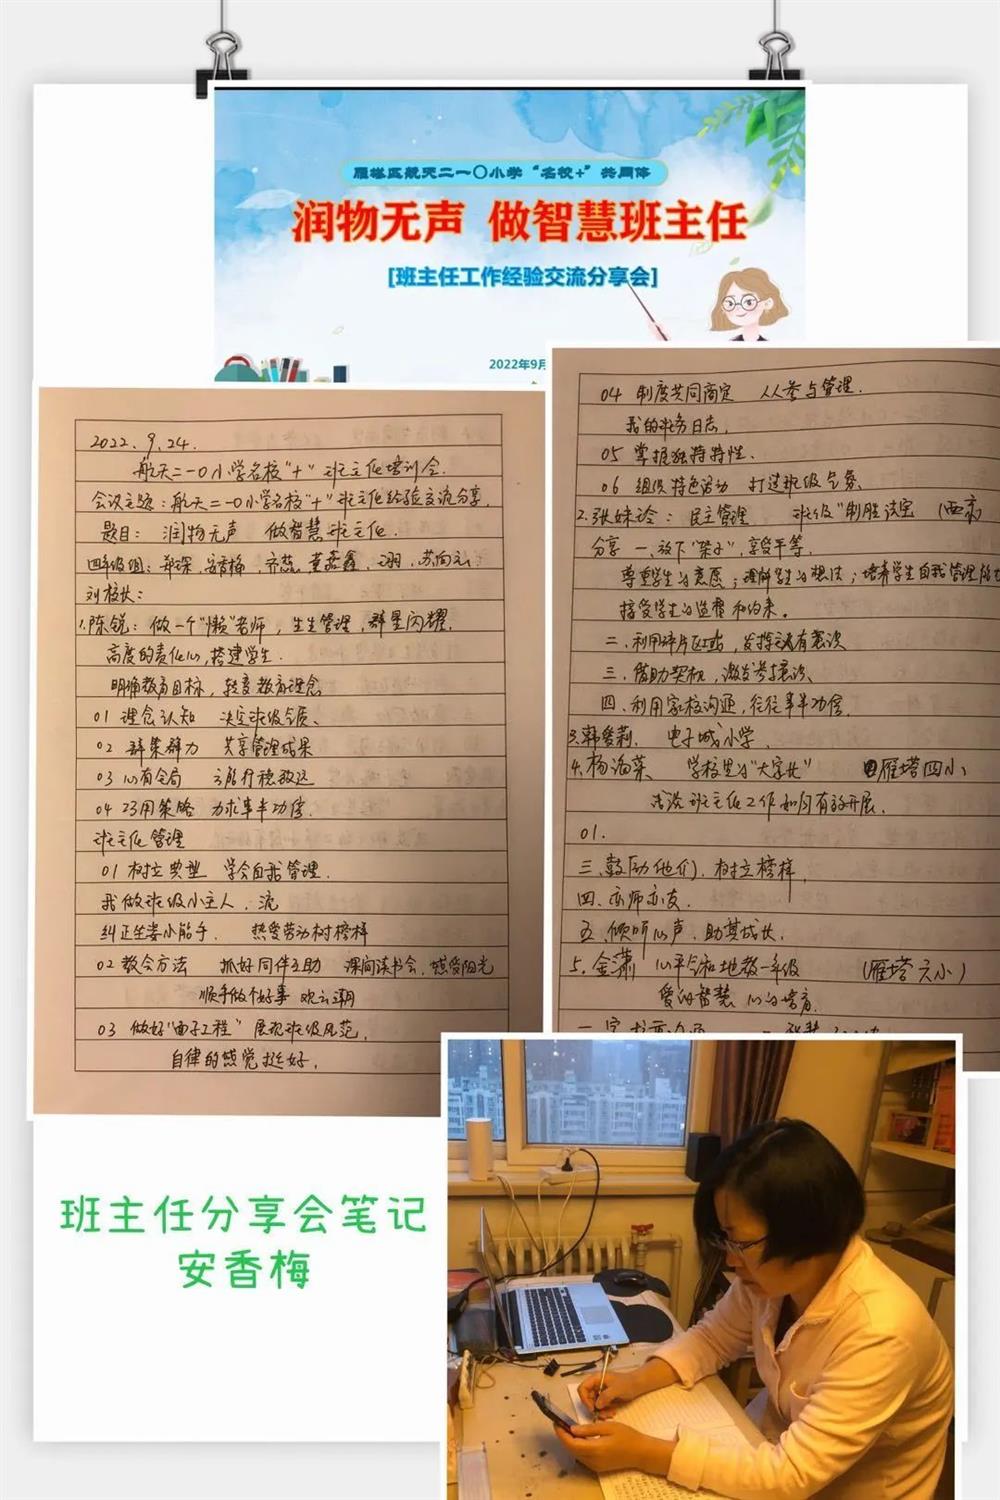 雁塔区航天二一〇小学“名校+”共同体
润物无声 做智慧班主任
[班主任工作经验交流分享会]
2022年9月
2022.9.24.
航天二一0小学名校“+”班主任培训会.
会议主题：航天二一0小学名校“+”班主任经验交流分享.
题目： 润物无声 做智慧班主任.
四年级组：郑琛 安香梅 齐蕊 董鑫鑫 苏向云
刘校长：
1.陈锐：做一个“懒”老师，生生管理，群星闪耀.
高度的责任心,搭建学生.
明确教育目标，转变教育理念
01 理念认知 决定班级气质、
02 群集群力 共享管理成果
03 心有全局 方能行稳致远
04 巧用策略 力求事半功倍.
班主任管理
01 树立典型 学会自我管理.
我做班级小主人．流
纠正坐姿小能手． 热爱劳动树榜样
02 教会方法 抓好同伴互助 课间读书会．感受阳光
顺手做个好事 观云潮
03 做好“面子工程” 展现班级风范．
自律的感觉挺好．
04 制度共同商定 人人参与管理．
我的班务日志．
05 掌握独特特性．
06 组织特色活动 打造班级名片．
2.张妹玲： 民主管理 班级“制胜法宝
分享 一、放下“架子”，享受平等．
尊重学生的意愿；理解学生的想法；培养学生自我管理能
接受学生的监督和约束。
二．利用碎片区域，发挥主观意识
三．借助契机，激发参与意识、
四．利用家校沟通，往往事半功倍．
3.韩爱莉． 电子城小学．
4.杨海菜 学校里的“大字化” 雁塔四小
浅谈班主任工作如何有效开展．
01.
三.鼓励他们，树立榜样．
四．亦师亦友．
五．倾听心声．助其成长．
5.金潇 心平气和地教一年级 （雁塔六小）
爱的智慧 心的培育．
班主任分享会笔记
安香梅